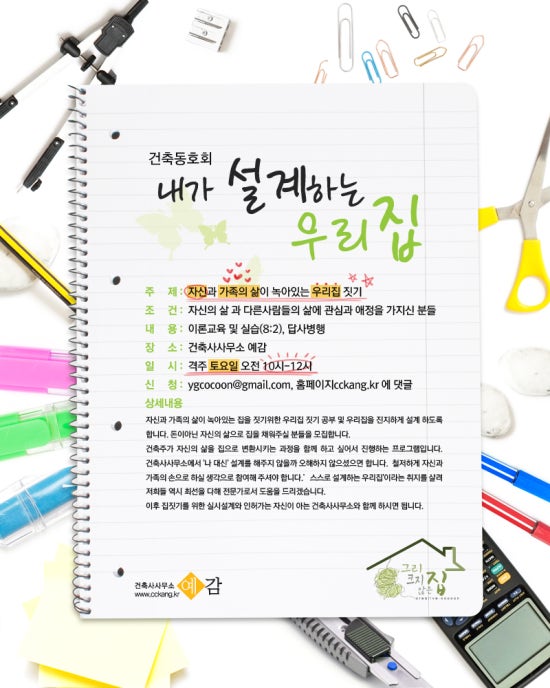 건축동호회
내가 설계하는
우리집
주 제 : 자신과 가족의 삶이 녹아있는 우리집 짓기
조 건 : 자신의 삶 과 다른사람들의 삶에 관심과 애정을 가지신 분들
내 용 : 이론교육 및 실습(8:2), 답사병행
장 소 : 건축사사무소 예감
일 시 : 격주 토요일 오전 10시-12시
신 청 : ygcocoon@gmail.com, 홈페이지cckang.kr 에 댓글
상세내용
자신과 가족의 삶이 녹아있는 집을 짓기위한 우리집 짓기 공부 및 우리집을 진지하게 설계 하도록
합니다. 돈이아닌 자신의 삶으로 집을 채워주실 분들을 모집합니다.
건축주가 자신의 삶을 집으로 변환시키는 과정을 함께 하고 싶어서 진행하는 프로그램입니다.
건축사사무소에서 '나 대신' 설계를 해주지 않을까 오해하지 않으셨으면 합니다. 철저하게 자신과
가족의 손으로 하실 생각으로 참여해 주셔야 합니다.' 스스로 설계하는 우리집'이라는 취지를 살려
저희들 역시 최선을 다해 전문가로서 도움을 드리겠습니다.
이후 집짓기를 위한 실시설계와 인허가는 자신이 아는 건축사사무소와 함께 하시면 됩니다.
건축사사무소
www.cckang.kr
예감
그리
크지
않은
집